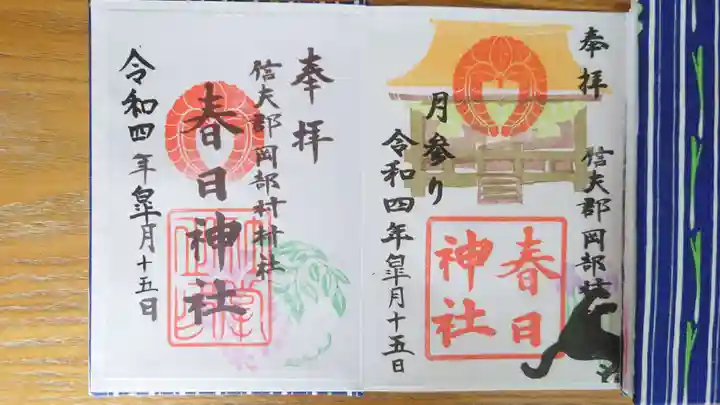 奉拝
信夫郡岡部村村社
春日神社
令和四年皐月十五日
奉拝
信夫郡岡部村
月参り
令和四年皐月十五日
春日
神社